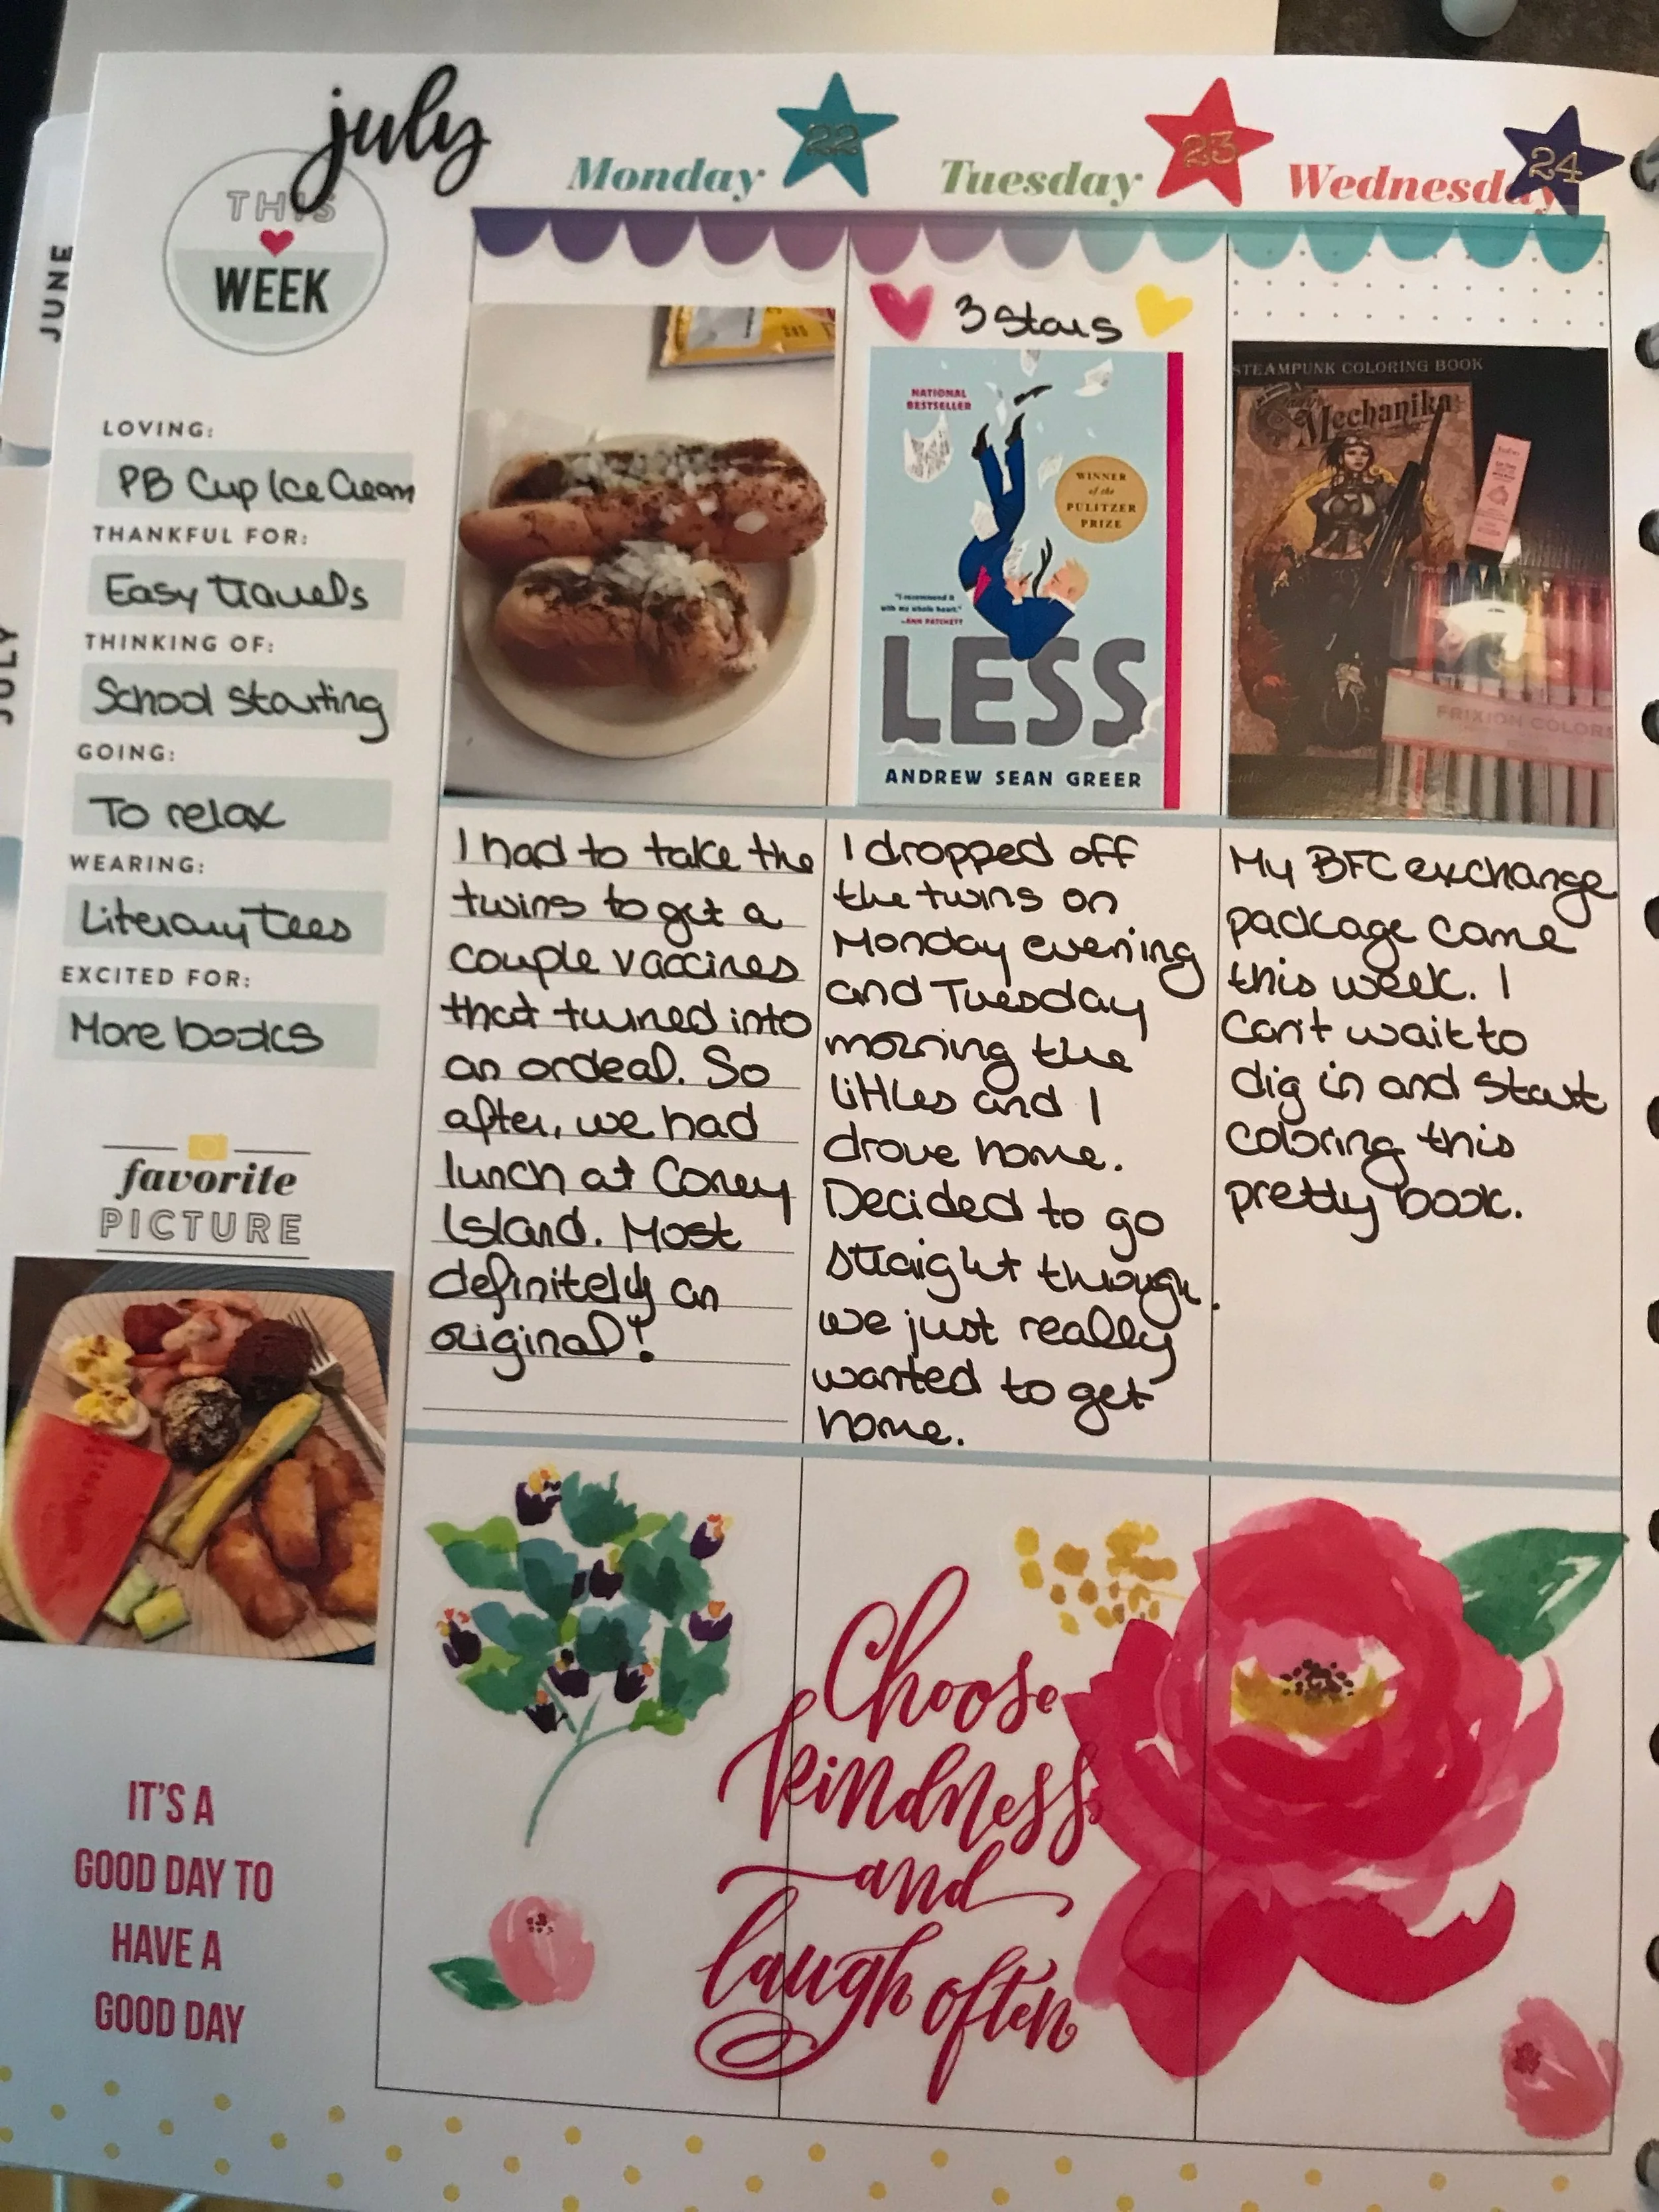 july
THIS
WEEK
JUNE
JULY
Monday 22
Tuesday 23
Wednesday 24
LOVING:
PB Cup Ice Cream
THANKFUL FOR:
Easy travels
THINKING OF:
School starting
GOING:
To relax
WEARING:
Literary tees
EXCITED FOR:
More books
favorite
PICTURE
IT'S A
GOOD DAY TO
HAVE A
GOOD DAY
I had to take the
twins to get a
couple vaccines
that turned into
an ordeal. So
after, we had
lunch at Coney
Island. Most
definitely an
original!
3 Stars
NATIONAL
BESTSELLER
WINNER
of the
PULITZER
PRIZE
"I recommend it
with my whole heart."
-ANN PATCHETT
LESS
ANDREW SEAN GREER
I dropped off
the twins on
Monday evening
and Tuesday
morning the
littles and I
drove home.
Decided to go
straight through.
we just really
wanted to get
home.
STEAMPUNK COLORING BOOK
Mechanika
FRIXION COLORS
My BFC exchange
package came
this week. I
can't wait to
dig in and start
coloring this
pretty book.
Choose
kindness
and
laugh often